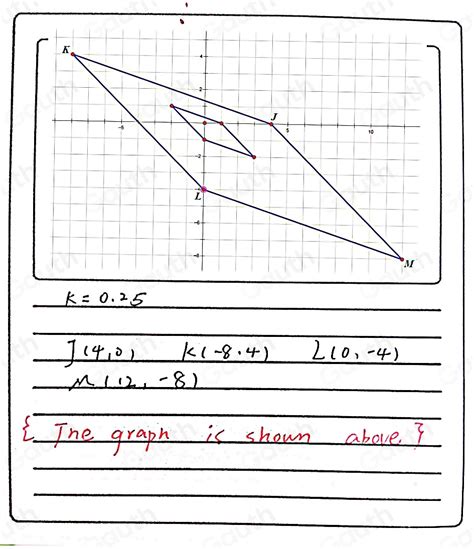 K
4
2
J
-5
5
10
-2
L
-6
-8
M
K = 0.25
J(4,0) K(-8.4) L(0,-4)
M(12,-8)
{ The graph is shown above. }